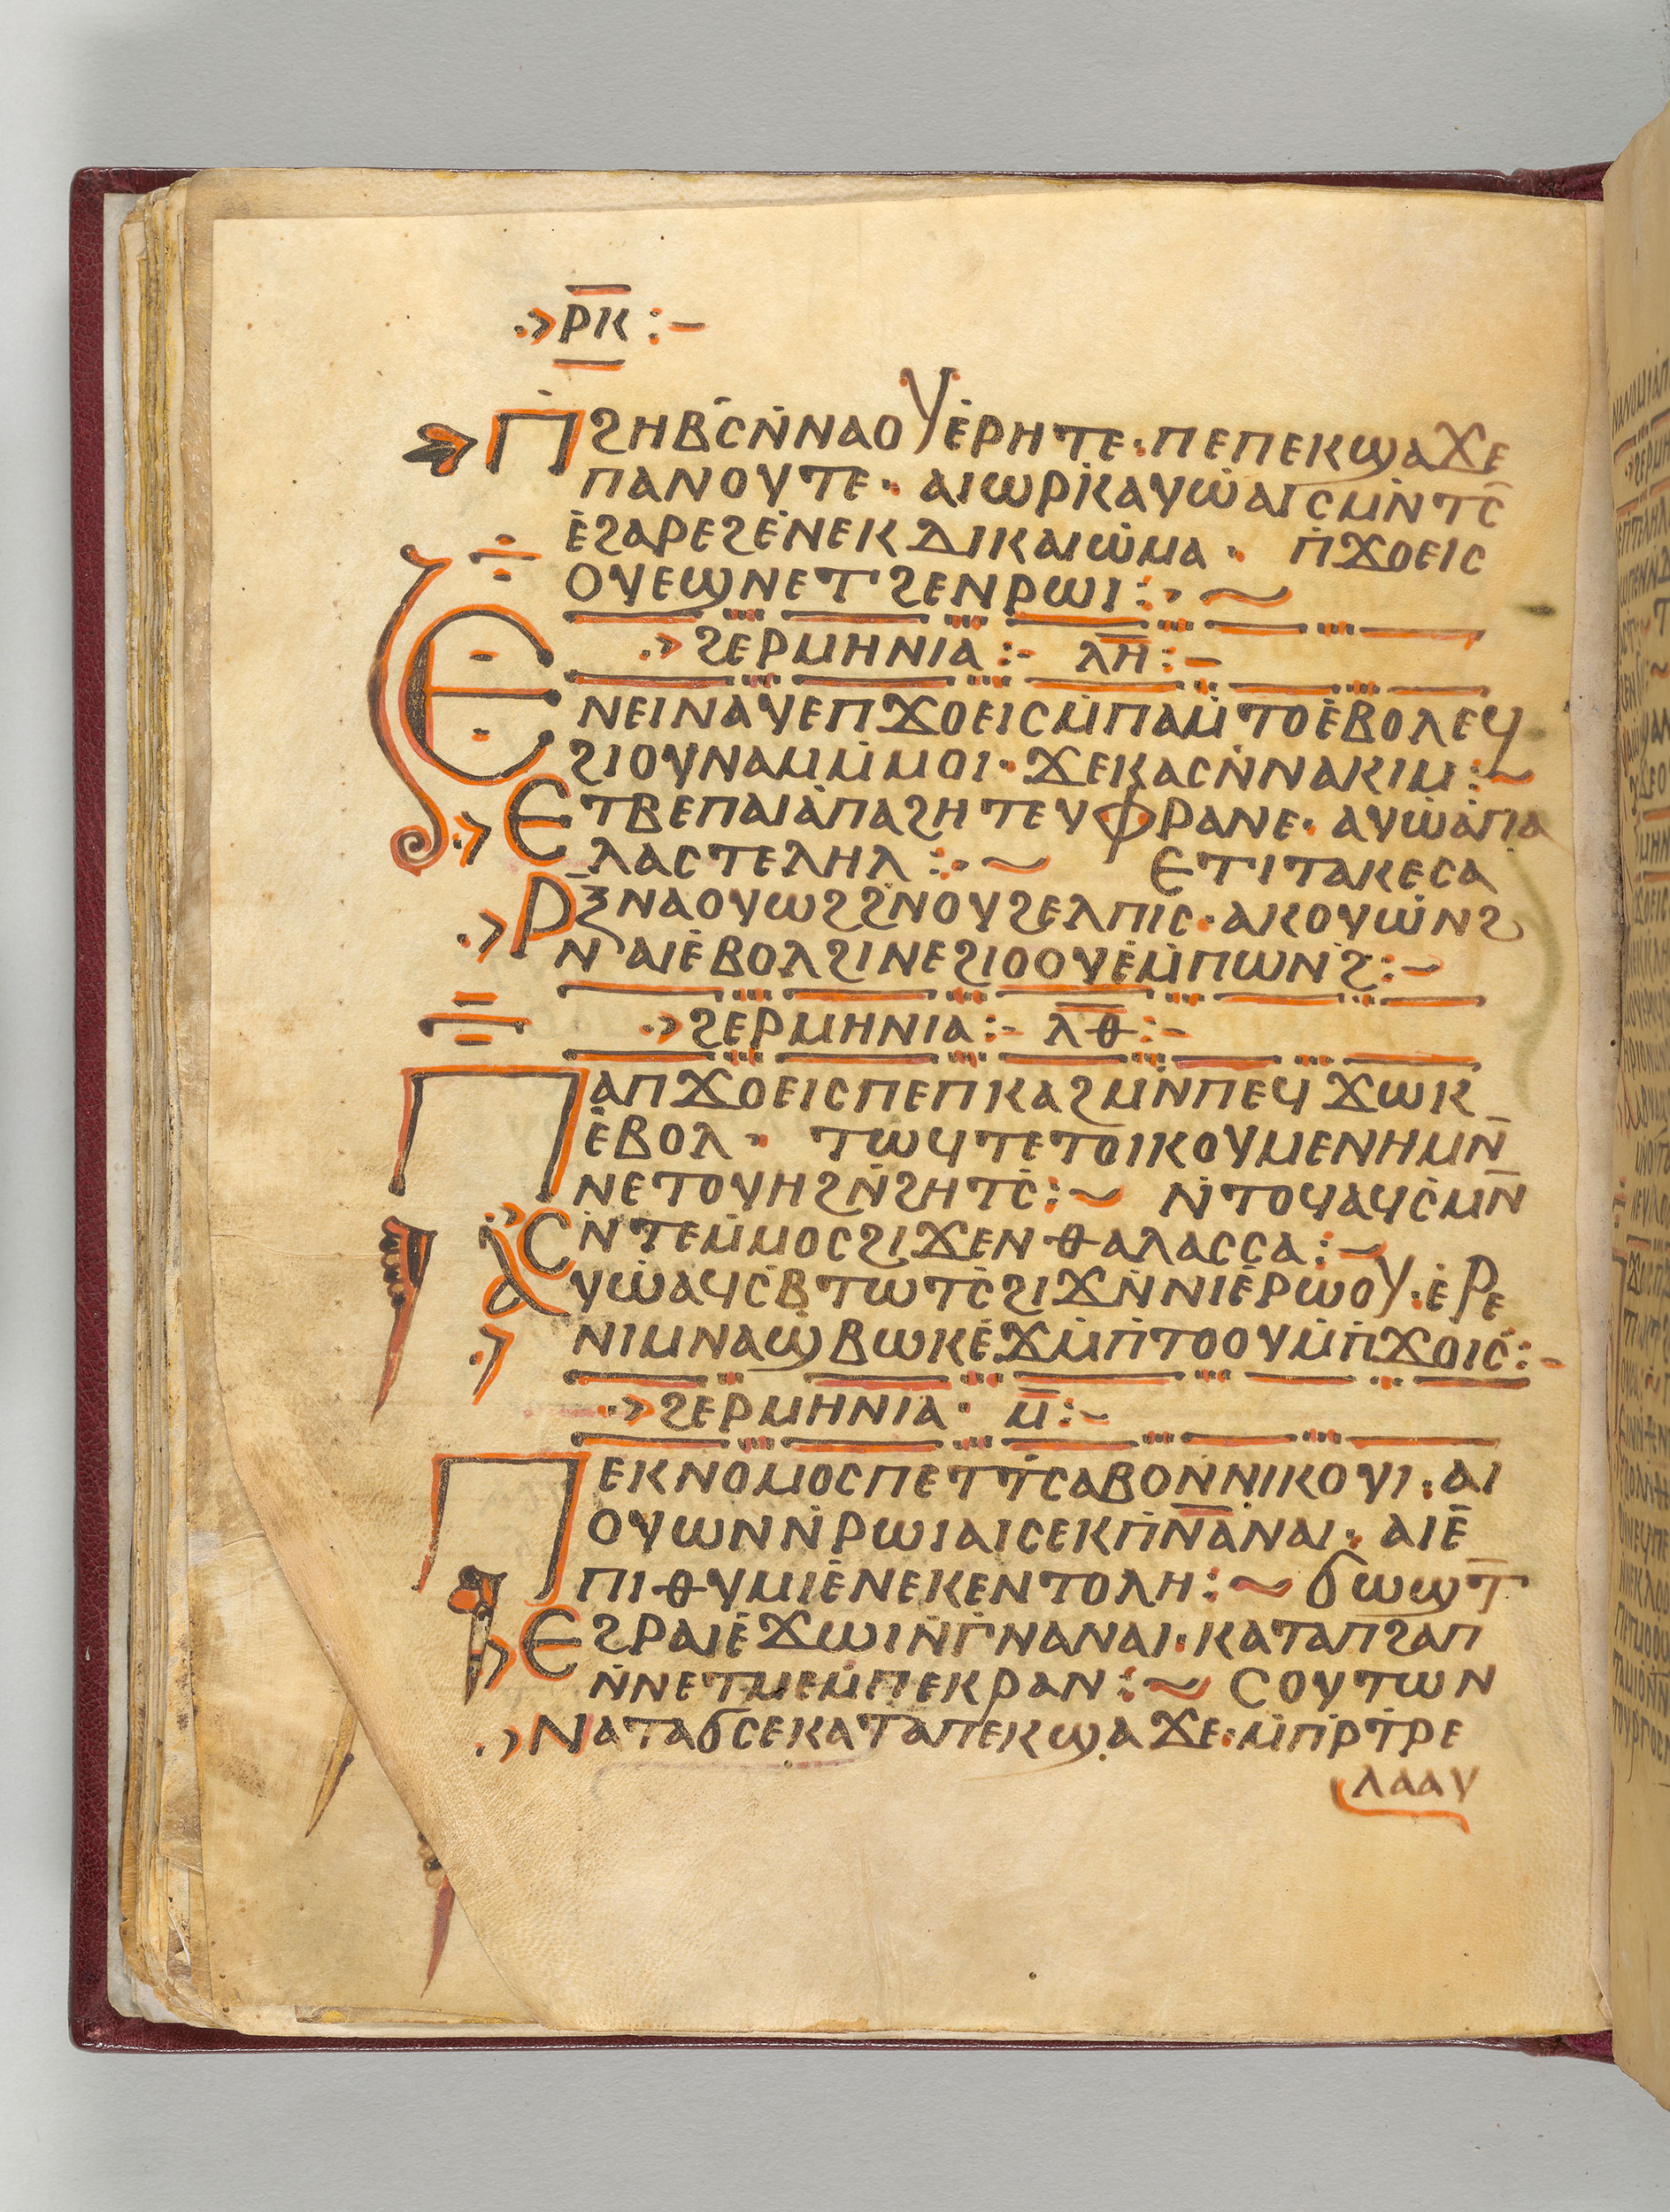 ⲣ̅ⲕ̅
ⲡ̇ϩⲏⲃ̅ⲥⲛ̇ⲛⲁⲟⲩⲉ̇ⲣⲏⲧⲉ· ⲡⲉⲡⲉⲕϣⲁϫⲉ
ⲡⲁⲛⲟⲩⲧⲉ· ⲁⲓⲱⲣⲕ̇ⲁⲩⲱ̇ⲁⲓⲥⲙⲛ̇ⲧⲥ̅
ⲉ̇ϩⲁⲣⲉϩⲉ̇ⲛⲉⲕⲇⲓⲕⲁⲓⲱ̇ⲙⲁ· ⲡ̇ϫⲟⲉⲓⲥ
ⲟⲩⲉϣⲛⲉⲧϩⲉⲛⲣⲱⲓ:·~
ϩⲉⲣⲙⲏⲛⲓⲁ:- ⲗ̅ⲏ̅:-
ⲉⲛⲉⲓⲛⲁⲩⲉⲡϫⲟⲉⲓⲥⲙ̇ⲡⲁⲙ̇ⲧⲟⲉ̇ⲃⲟⲗⲉϥ
ϩⲓⲟⲩⲛⲁⲙⲙ̇ⲙⲟⲓ· ϫⲉⲕⲁⲥⲛ̇ⲛⲁⲕⲓⲙ:~
ⲉⲧⲃⲉⲡⲁⲓⲁ̇ⲡⲁϩⲏⲧⲉⲩⲫⲣⲁⲛⲉ· ⲁⲩⲱ̇ⲁ̇ⲡⲁ
ⲗⲁⲥⲧⲉⲗⲏⲗ:·~ ⲉⲧⲓⲧⲁⲕⲉⲥⲁ
ⲣⲝ̅ⲛⲁⲟⲩⲱϩϩⲛ̇ⲟⲩϩⲉⲗⲡⲓⲥ· ⲁⲕⲟⲩⲱ̇ⲛϩ
ⲛⲁⲓⲉ̇ⲃⲟⲗϩⲓⲛⲉϩⲓⲟⲟⲩⲉ̇ⲙ̇ⲡⲱⲛϩ̇:-
ϩⲉⲣⲙⲏⲛⲓⲁ:- ⲗ̅ⲑ̅:-
ⲡⲁⲡϫⲟⲉⲓⲥⲡⲉⲡⲕⲁϩⲙⲛ̇ⲡⲉϥϫⲱⲕ
ⲉ̇ⲃⲟⲗ· ⲧⲱϥⲧⲉⲧⲟⲓⲕⲟⲩⲙⲉⲛⲏⲙⲛ̅
ⲛⲉⲧⲟⲩⲏϩⲛ̇ϩⲏⲧⲥ̇:~ ⲛ̇ⲧⲟϥⲁϥⲥ̇ⲙⲛ̅
ⲥⲛ̇ⲧⲉⲙ̇ⲙⲟⲥϩⲓϫⲉⲛⲑⲁⲗⲁⲥⲥⲁ:~
ⲁⲩⲱ̇ⲁϥⲥ̇ⲃⲧⲱⲧⲥ̇ϩⲓϫⲛ̇ⲛⲓⲉ̇ⲣⲱⲟⲩ· ⲉ̇ⲣⲉ
ⲛⲓⲙⲛⲁϣ̇ⲃⲱⲕⲉ̇ϫⲙ̇ⲡ̇ⲧⲟⲟⲩⲙ̇ⲡ̇ϫⲟⲓⲥ̇:-
ϩⲉⲣⲙⲏⲛⲓⲁ· ⲙ̅:~
ⲡⲉⲕⲛⲟⲙⲟⲥⲡⲉⲧⲧ̇ⲥⲁⲃⲟⲛ̇ⲛⲓⲕⲟⲩⲓ· ⲁⲓ
ⲟⲩⲱⲛⲛ̇ⲣⲱⲓⲁⲓⲥⲉⲕⲡ̇ⲛ̅ⲁ̅ⲛⲁⲓ· ⲁⲓⲉ̅
ⲡⲓⲑⲩⲙⲓⲉ̇ⲛⲉⲕⲉⲛⲧⲟⲗⲏ:~ ϭⲱϣⲧ̅
ⲉϩⲣⲁⲓⲉ̇ϫⲱⲓⲛ̇ⲅ̇ⲛⲁⲛⲁⲓ· ⲕⲁⲧⲁⲡϩⲁⲡ
ⲛ̇ⲛⲉⲧⲙⲉⲙ̇ⲡⲉⲕⲣⲁⲛ:~ ⲥⲟⲩⲧⲱⲛ
ⲛⲁⲧⲁϭⲥⲉⲕⲁⲧⲁⲡⲉⲕϣⲁϫⲉ· ⲙ̇ⲡ̇ⲣⲧ̇ⲣⲉ
ⲗⲁⲁⲩ